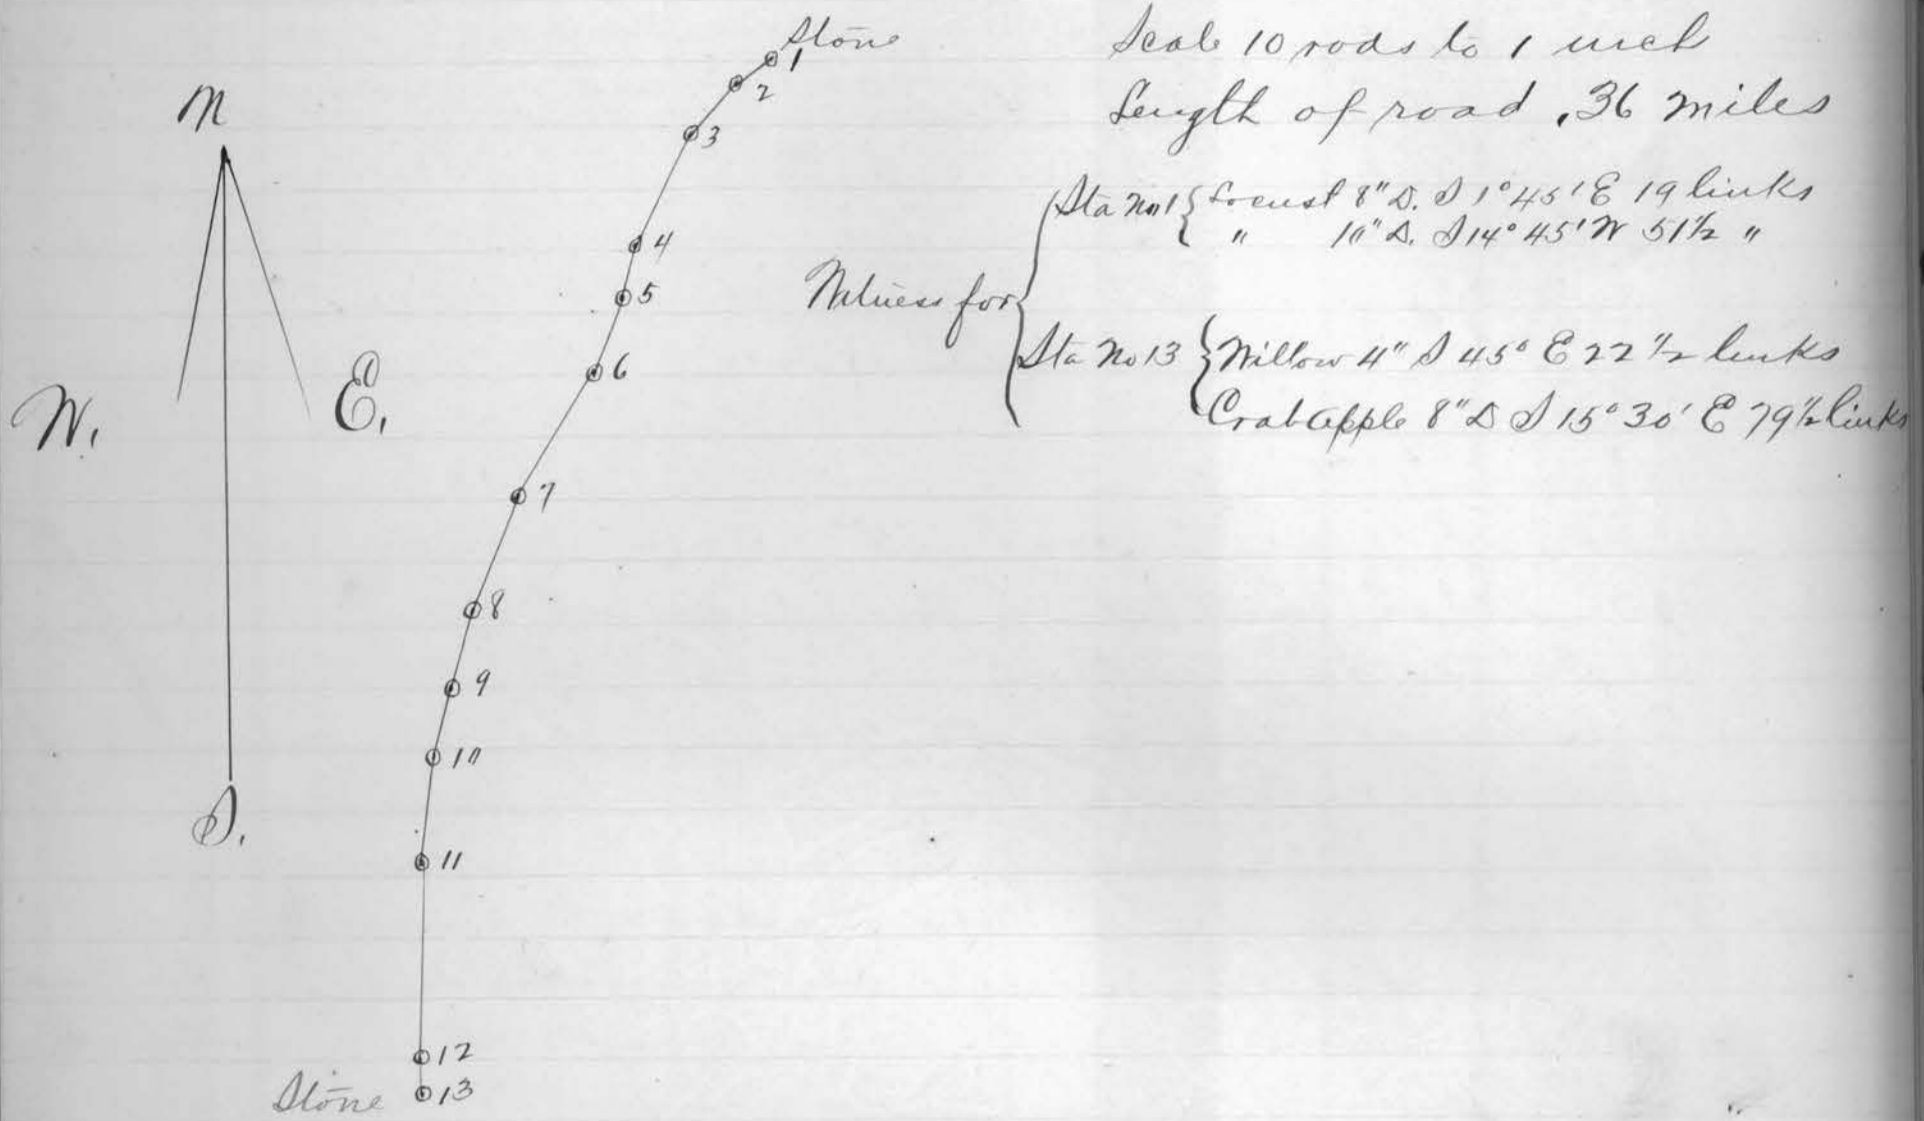 Stone
1
2
3
4
5
6
7
8
9
10
11
12
13
Stone
N
W.
E.
S.
Scale 10 rods to 1 inch
Length of road .36 miles
Witness for
Sta No 1 { Locust 8" D. S 1° 45' E 19 links
" 10" D. S 14° 45' W 51 1/2 "
Sta No 13 { Willow 4" S 45° E 22 1/2 links
Crab apple 8" D S 15° 30' E 79 1/2 links